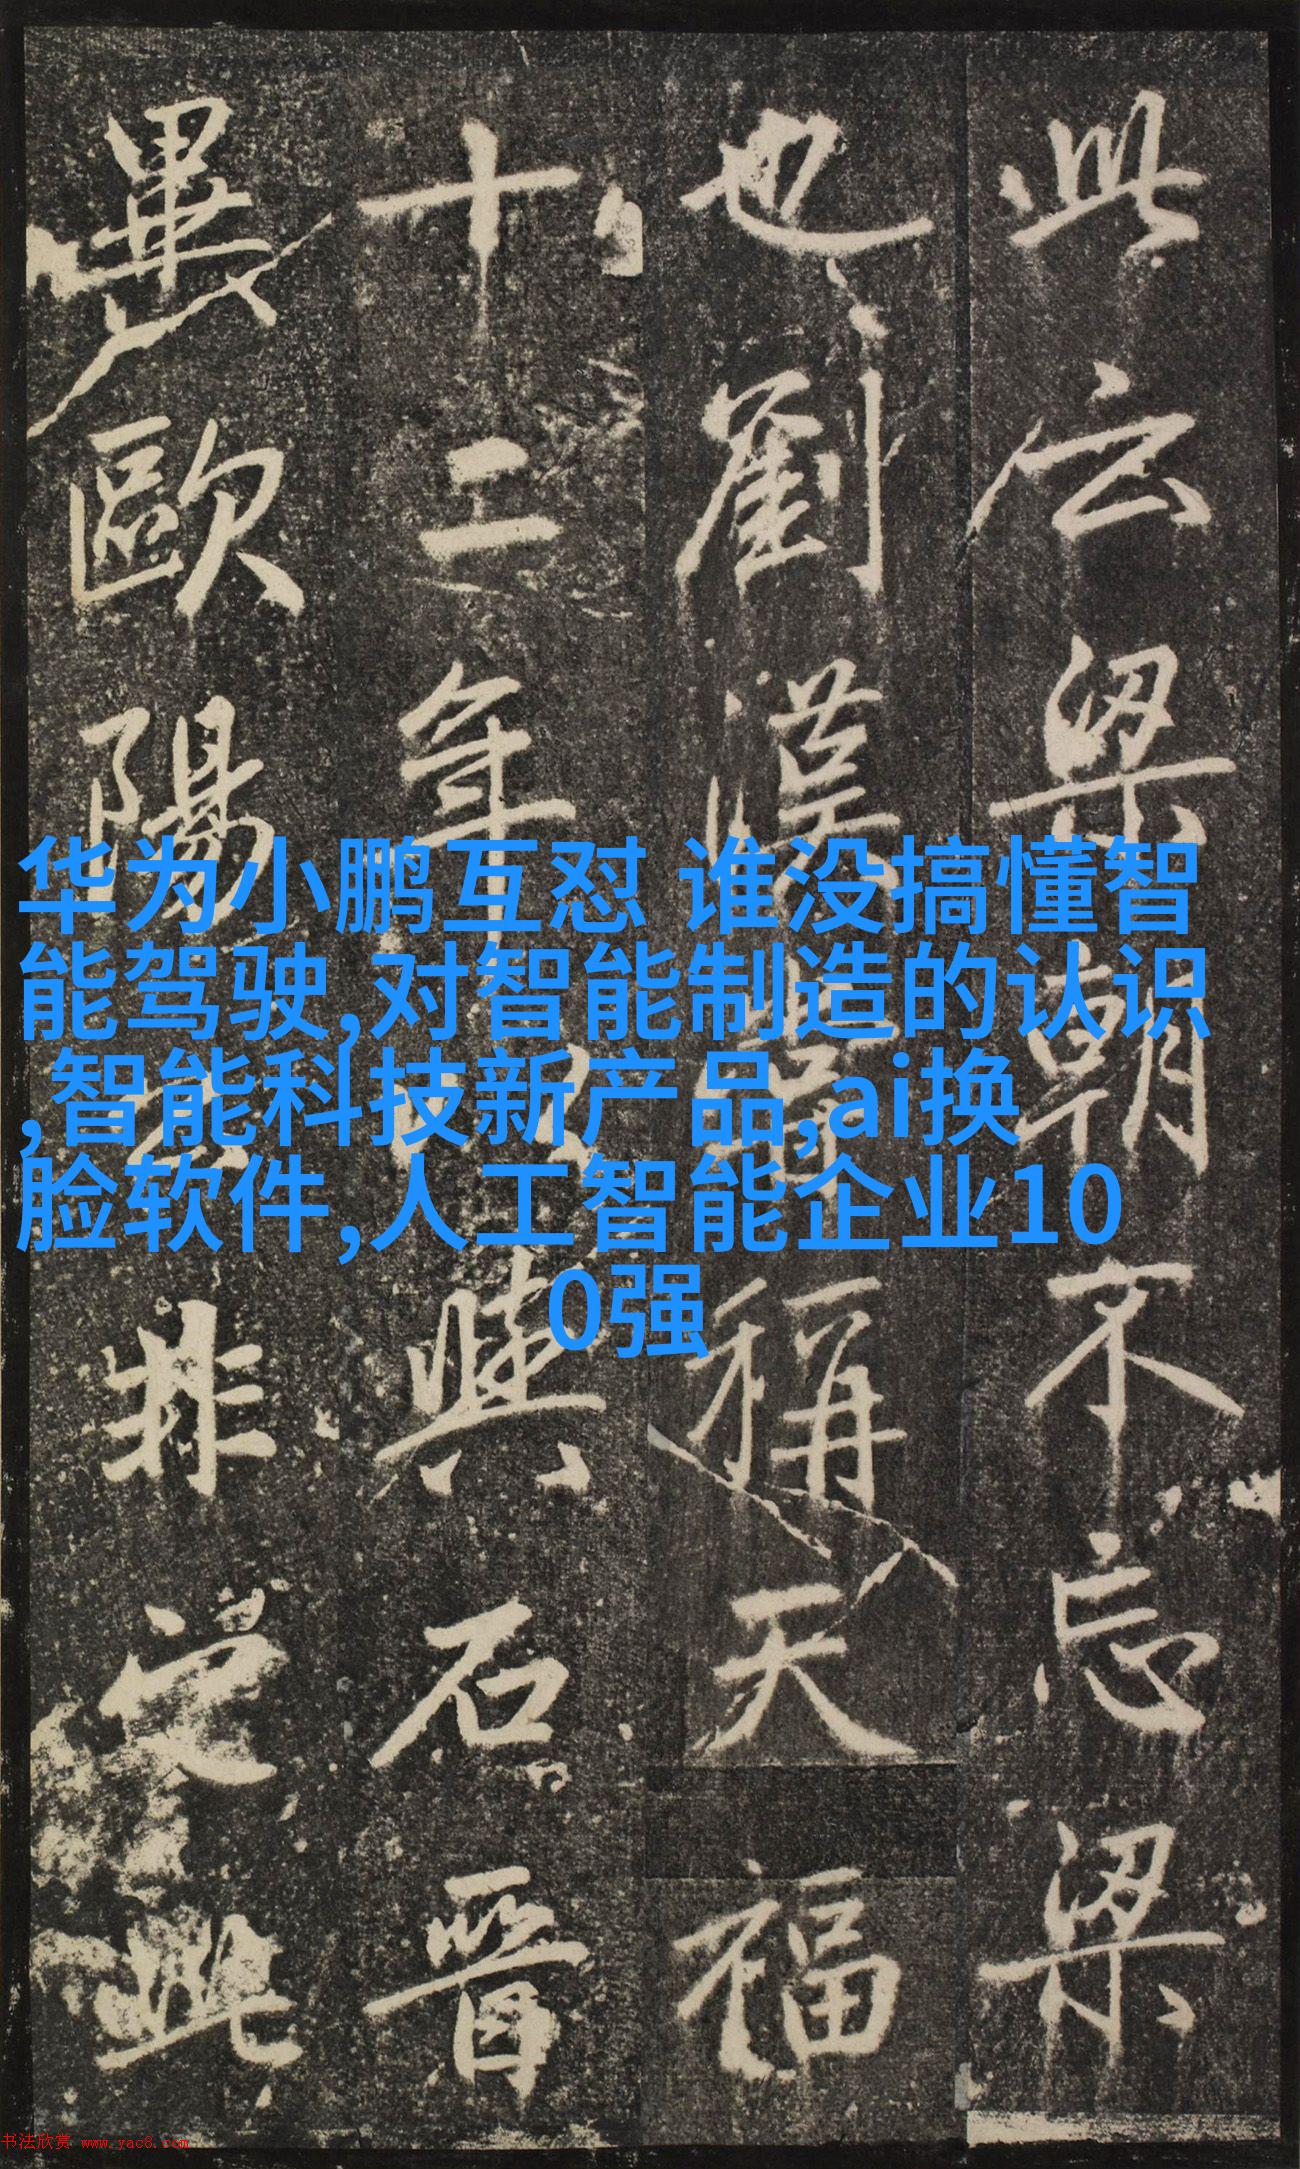 此云梁朝不忘梁
也劉漢稱天福
十二年與石晉
畢歐陽非此
华为小鹏互怼 谁没搞懂智
能驾驶,对智能制造的认识
,智能科技新产品,ai换
脸软件,人工智能企业10
0强
书法欣赏 www.yac8.com